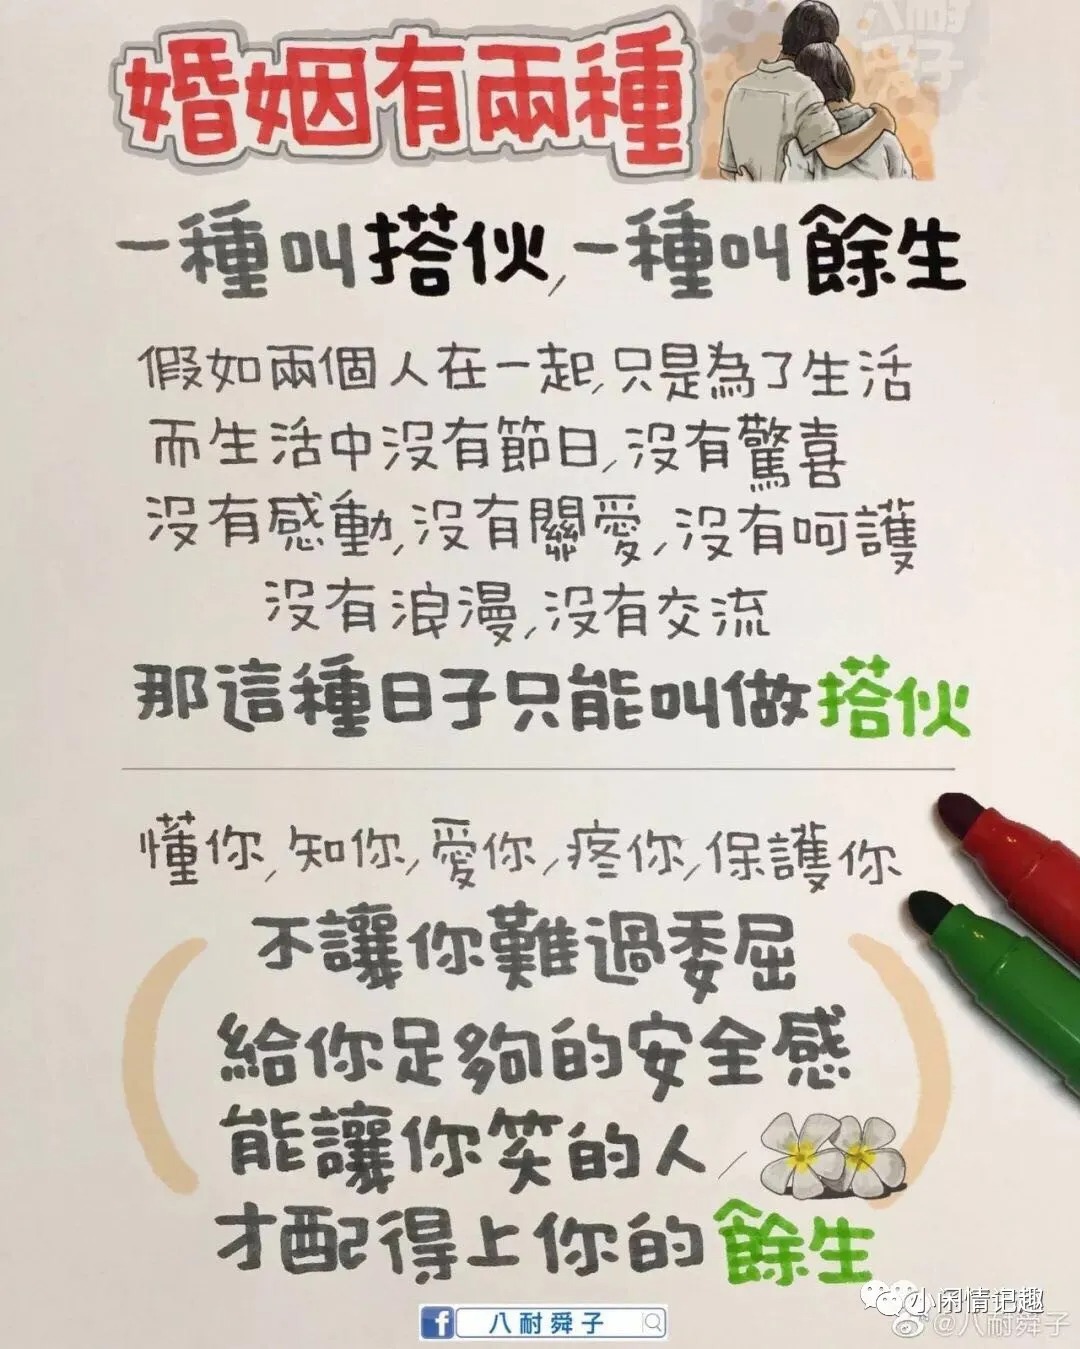 婚姻有兩種
一種叫搭伙,一種叫餘生
假如兩個人在一起,只是為了生活
而生活中沒有節日,沒有驚喜
沒有感動,沒有關愛,沒有呵護
沒有浪漫,沒有交流
那這種日子只能叫做搭伙
懂你,知你,愛你,疼你,保護你
不讓你難過委屈
給你足夠的安全感
能讓你笑的人,
才配得上你的餘生
八耐舜子
小闲情记趣
@八耐舜子
八耐舜子